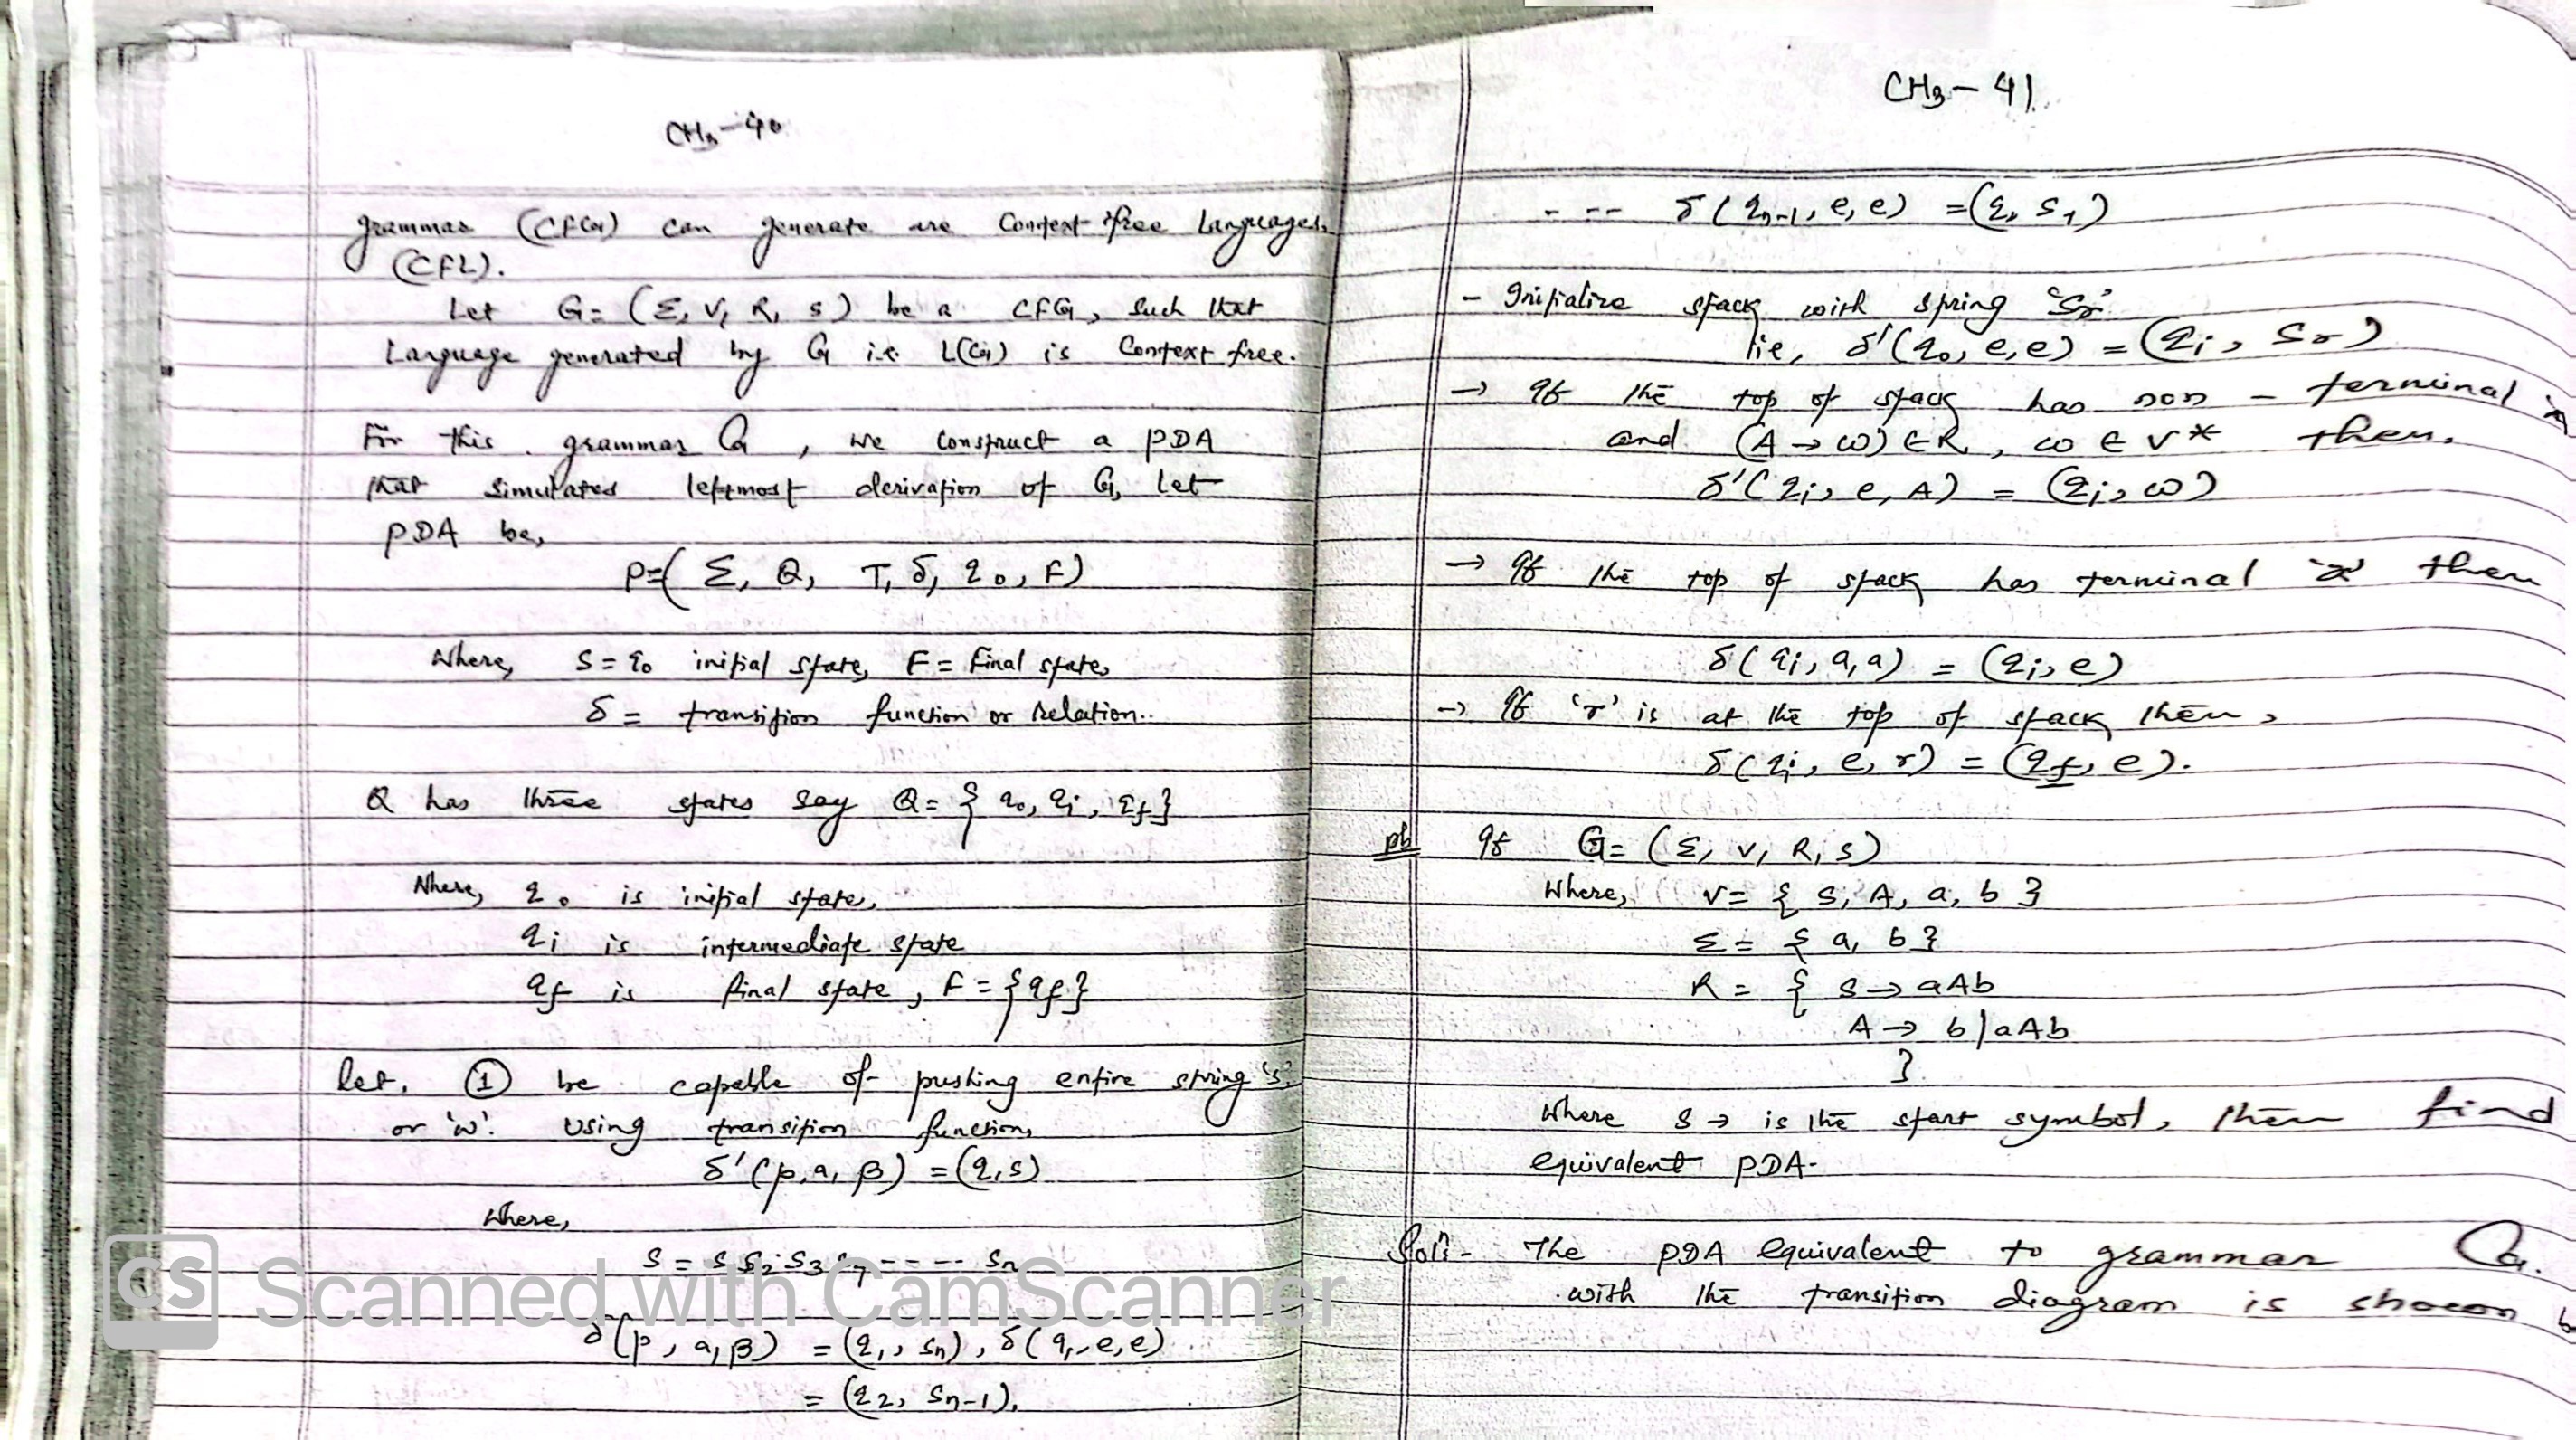 CH3-40
grammar (CFG) can generate are Context free Languages.
(CFL).
Let G = (Σ, V, R, S) be a CFG, Such that
Language generated by G i.e. L(G) is Context free.
For this grammar G, we construct a PDA
that simulates leftmost derivation of G, Let
PDA be,
P=( Σ, Q, T, δ, q0, F)
Where, S = q0 initial state, F = Final state,
δ = transition function or Relation..
Q has three states say Q = { q0, qi, qf}
Where, q0 is initial state,
qi is intermediate state
qf is final state, F = {qf}
let, ① be capable of pushing entire string 's'
or 'w'. Using transition function,
δ'(p, a, β) = (q, s)
Where,
S = S1 S2 S3 ----- Sn
δ(p, a, β) = (q1, Sn), δ(q1, e, e)
= (q2, Sn-1),
CH3-41
- -- δ(qn-1, e, e) = (q, S1)
- Initialize stack with string 'Sr'
ie, δ'(q0, e, e) = (qi, Sr)
→ If the top of stack has non - terminal A
and (A → ω) ∈ R, ω ∈ V* then,
δ'(qi, e, A) = (qi, ω)
→ If the top of stack has terminal 'a' then
δ(qi, a, a) = (qi, e)
→ If 'r' is at the top of stack then,
δ(qi, e, r) = (qf, e).
pb If G = (Σ, V, R, S)
Where, V = { S, A, a, b }
Σ = { a, b }
R = { S → aAb
A → b|aAb
}
Where S → is the start symbol, then find
equivalent PDA.
Soln:- The PDA equivalent to grammar G.
with the transition diagram is shown
CS Scanned with CamScanner